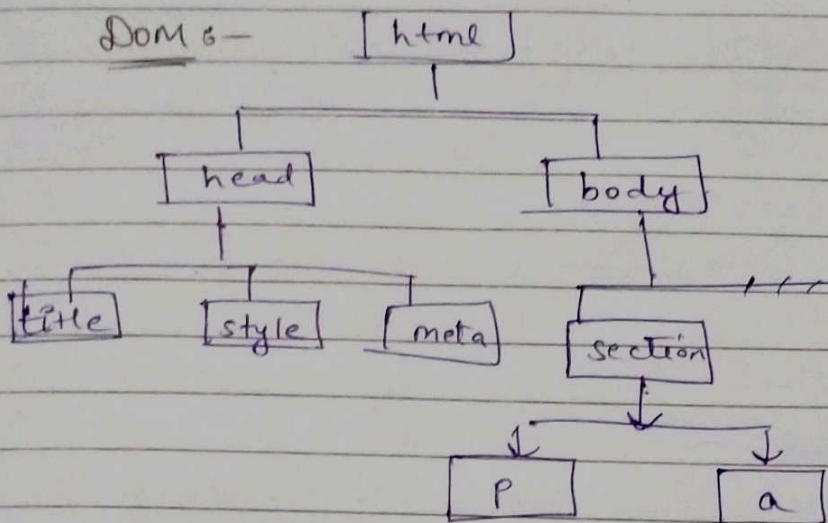 DOM :- html
head body
title style meta section
p a